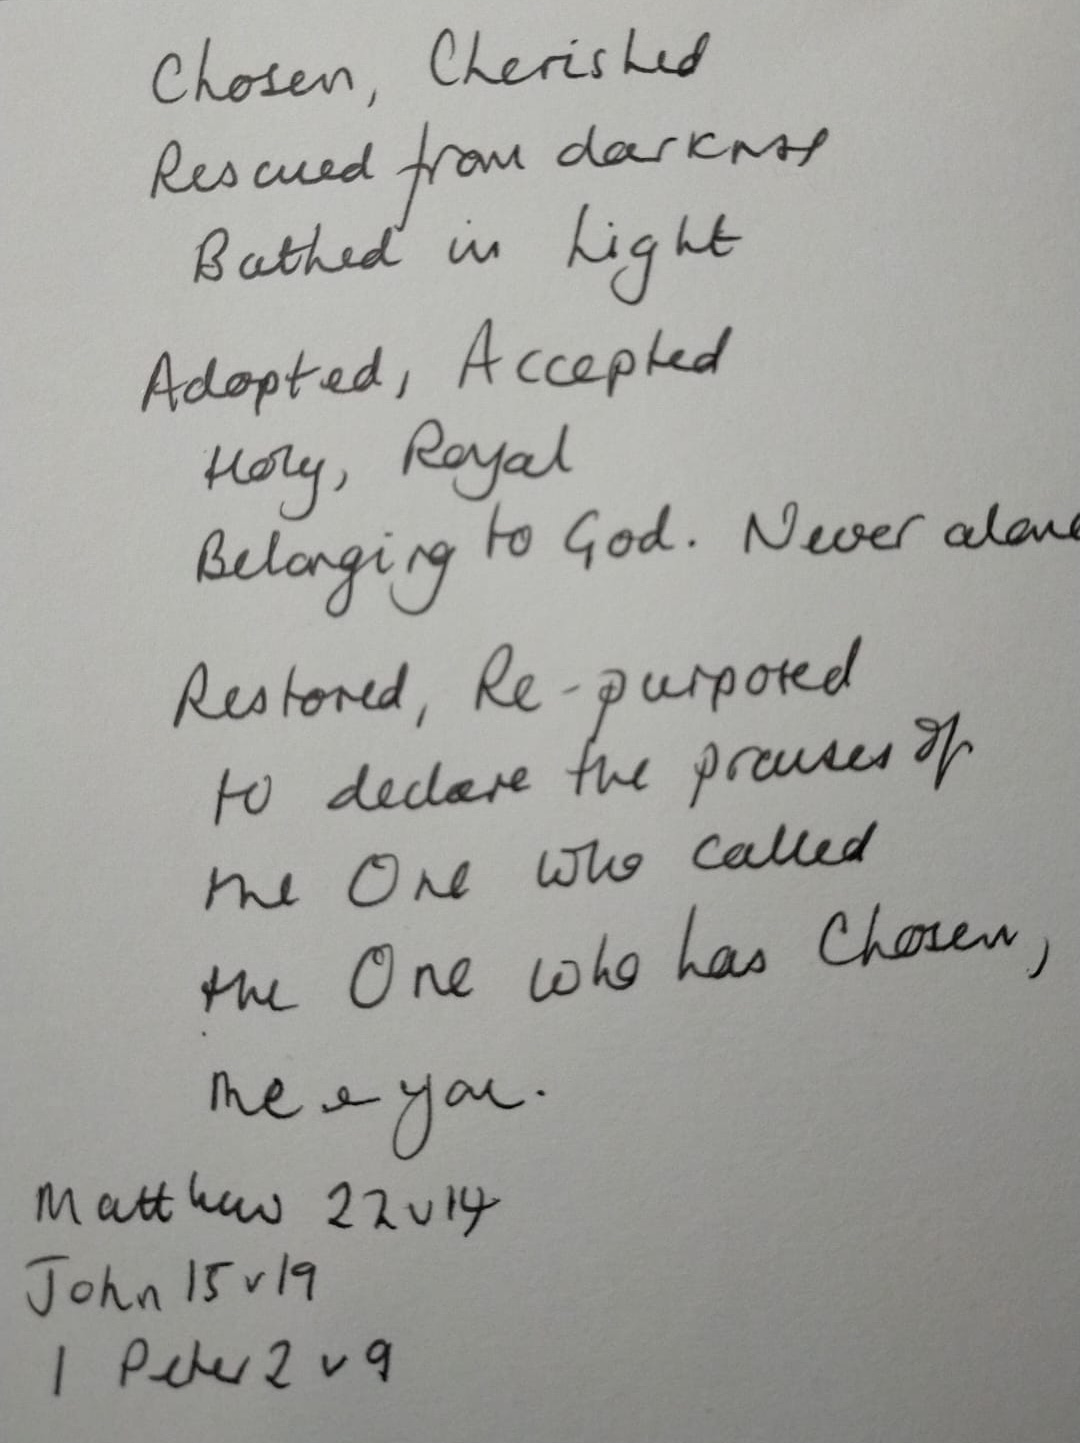 Chosen, Cherished
Rescued from darkness
Bathed in Light
Adopted, Accepted
Holy, Royal
Belonging to God. Never alone
Restored, Re-purposed
to declare the praises of
the One who called
the One who has Chosen,
me & you.
Matthew 22 v 14
John 15 v 19
1 Peter 2 v 9